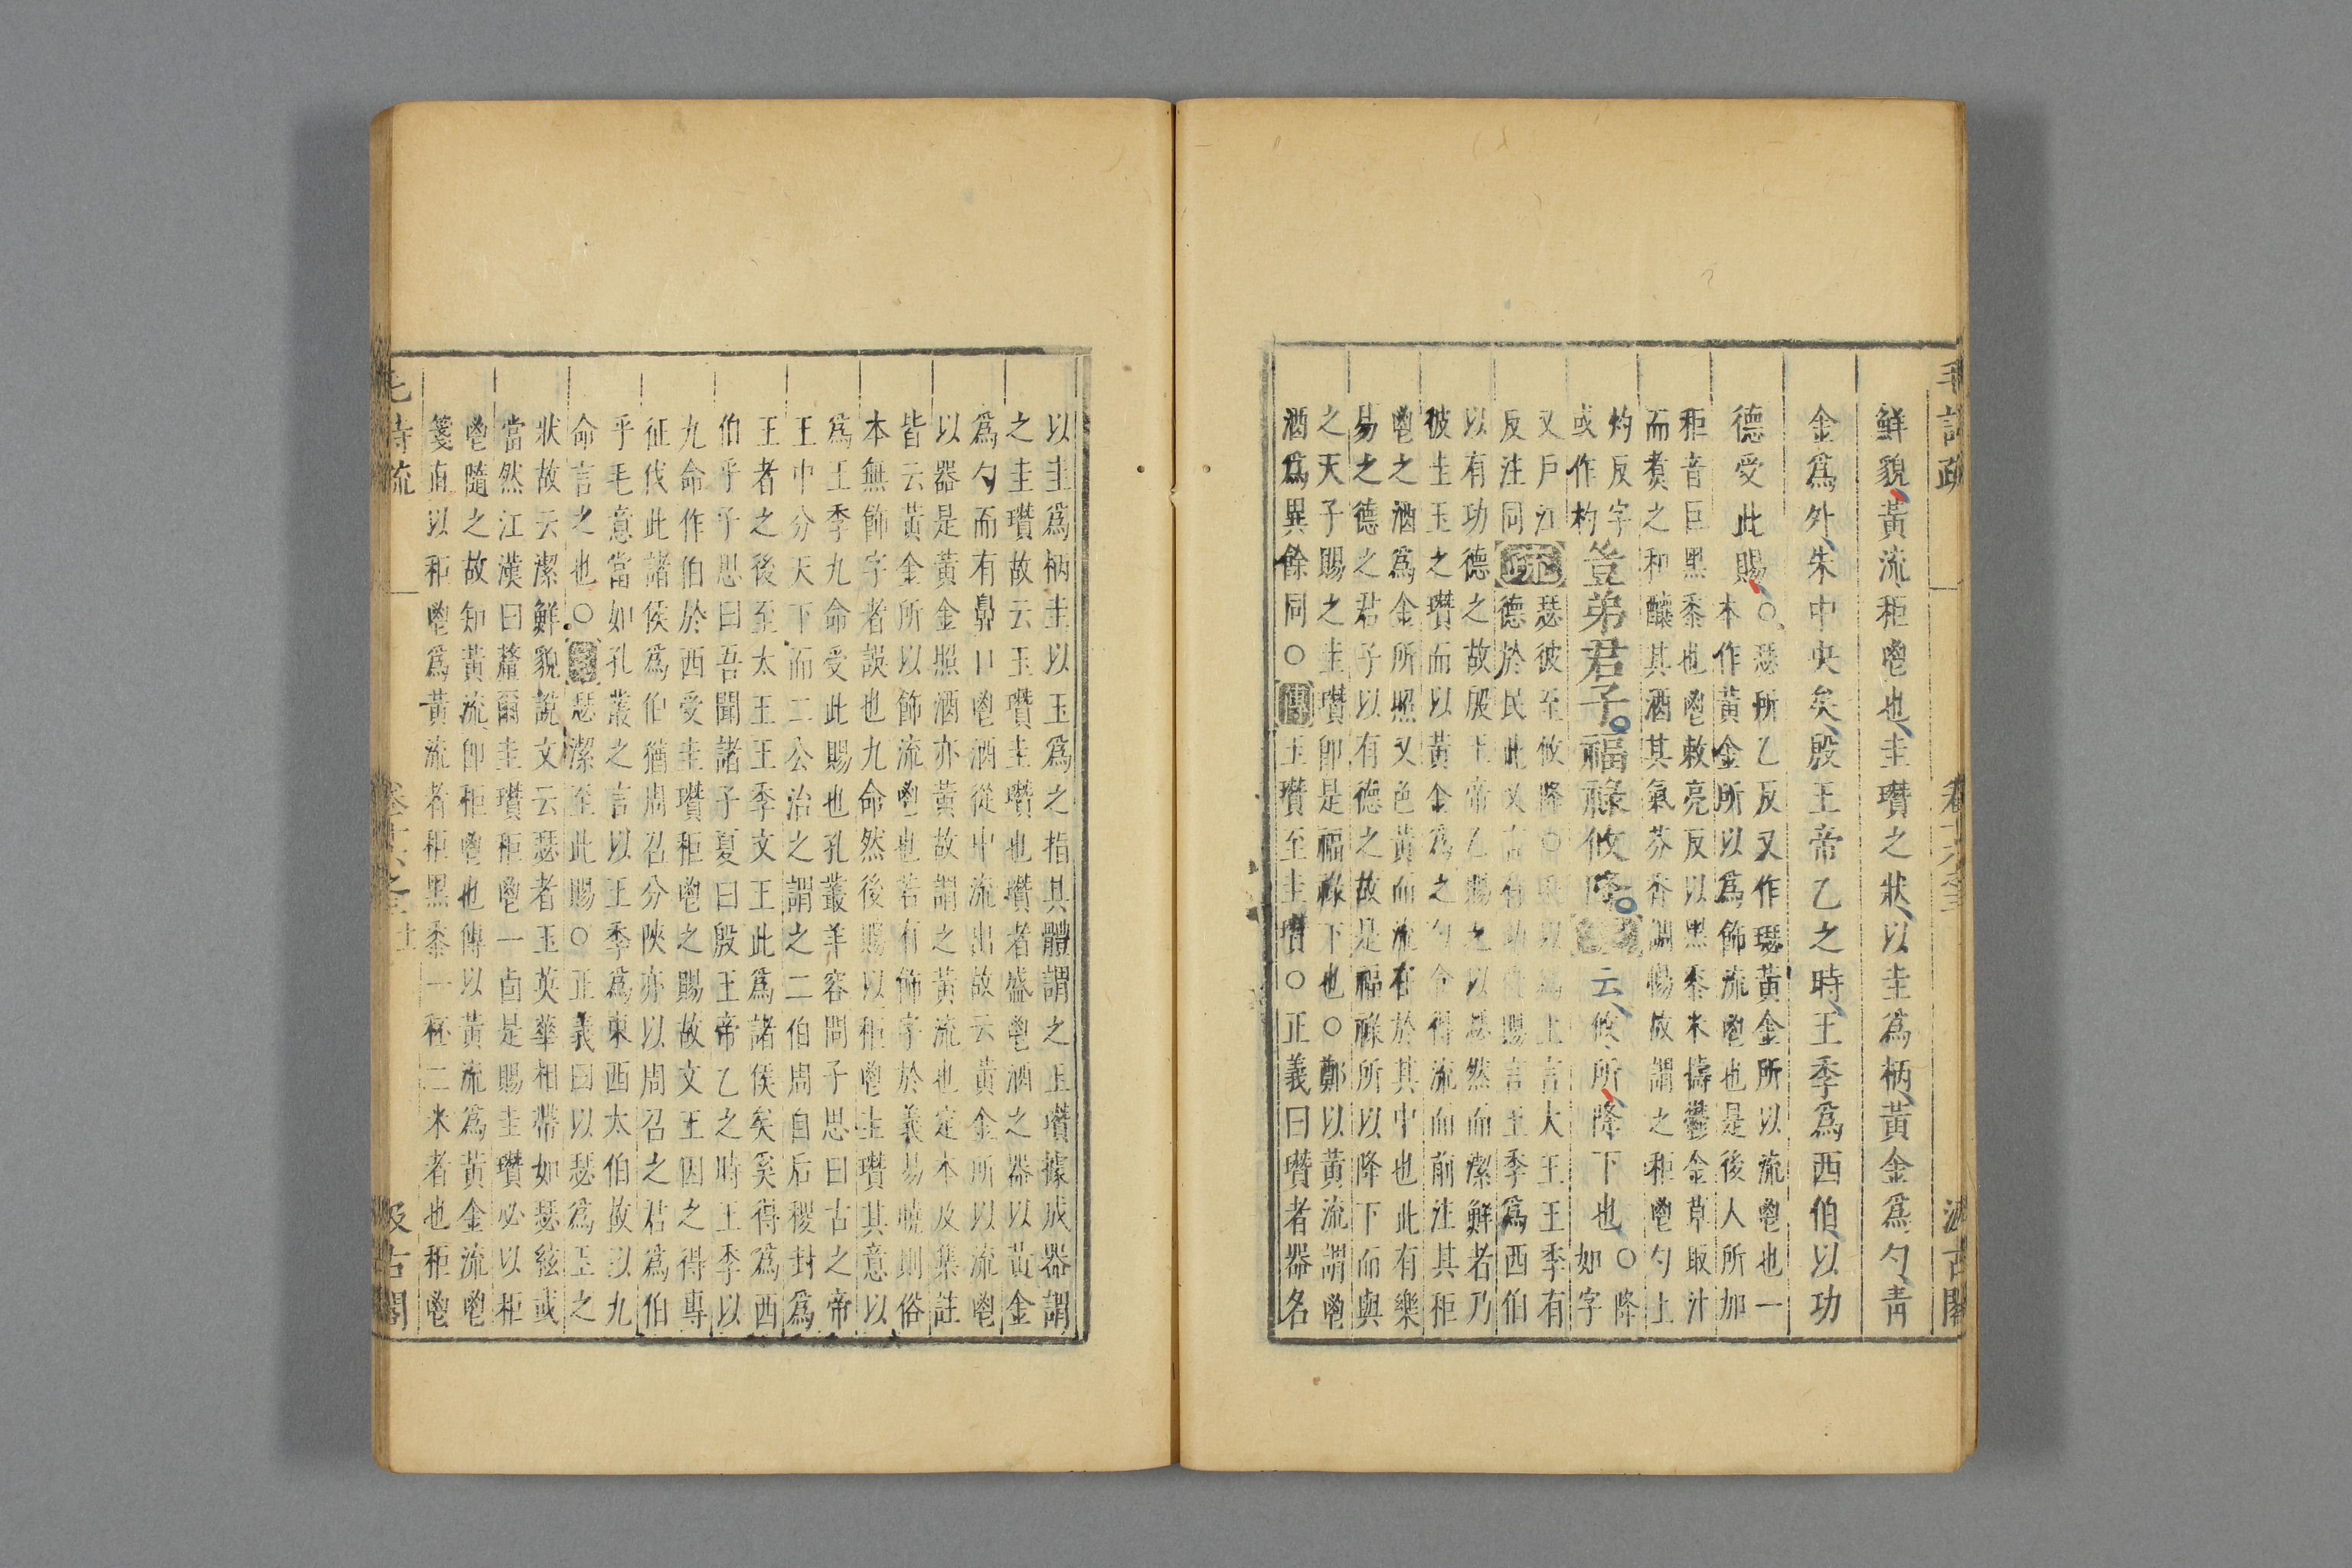 毛詩疏 卷十六之三 汲古閣
鮮貌黃流秬鬯也圭瓚之狀以圭爲柄黃金爲勺靑
金爲外朱中央矣殷王帝乙之時王季爲西伯以功
德受此賜○瑟所乙反又作璱黃金所以流鬯也一
本作黃金所以爲飾流鬯也是後人所加
秬音巨黑黍也鬯敕亮反以黑黍米擣鬱金草取汁
而煑之和釀其酒其氣芬香調暢故謂之秬鬯勺上
灼反字
或作杓
豈弟君子福祿攸降
云攸所降下也○降
如字
又戶江
反注同
疏
瑟彼至攸降○毛以爲上言大王王季有
德於民此又言有功受賜言王季爲西伯
以有功德之故殷王帝乙賜之以瑟然而潔鮮者乃
彼圭玉之瓚而以黃金爲之勺令得流而前注其秬
鬯之酒爲金所照又色黃而流在於其中也此有樂
易之德之君子以有德之故是福祿所以降下而與
之天子賜之圭瓚卽是福祿下也○鄭以黃流謂鬯
酒爲異餘同○傳玉瓚至圭瓚○正義曰瓚者器名
以圭爲柄圭以玉爲之指其體謂之玉瓚據成器謂
之圭瓚故云玉瓚圭瓚也瓚者盛鬯酒之器以黃金
爲勺而有鼻口鬯酒從中流出故云黃金所以流鬯
以器是黃金照酒亦黃故謂之黃流也定本及集註
皆云黃金所以飾流鬯也若有飾字於義易曉則俗
本無飾字者誤也九命然後賜以秬鬯圭瓚其意以
爲王季九命受此賜也孔叢羊容問子思曰古之帝
王中分天下而二公治之謂之二伯周自后稷封爲
王者之後至太王王季文王此爲諸侯矣奚得爲西
伯乎子思曰吾聞諸子夏曰殷王帝乙之時王季以
九命作伯於西受圭瓚秬鬯之賜故文王因之得專
征伐此諸侯爲伯猶周召分陝亦以周召之君爲伯
乎毛意當如孔叢之言以王季爲東西太伯故以九
命言之也○箋瑟潔至此賜○正義曰以瑟爲玉之
狀故云潔鮮貌說文云瑟者玉英華相帶如瑟絃或
當然江漢曰釐爾圭瓚秬鬯一卣是賜圭瓚必以秬
鬯隨之故知黃流卽秬鬯也傳以黃流爲黃金流鬯
箋直以秬鬯爲黃流者秬黑黍一秠二米者也秬鬯
毛詩疏 卷十六之三 十 汲古閣